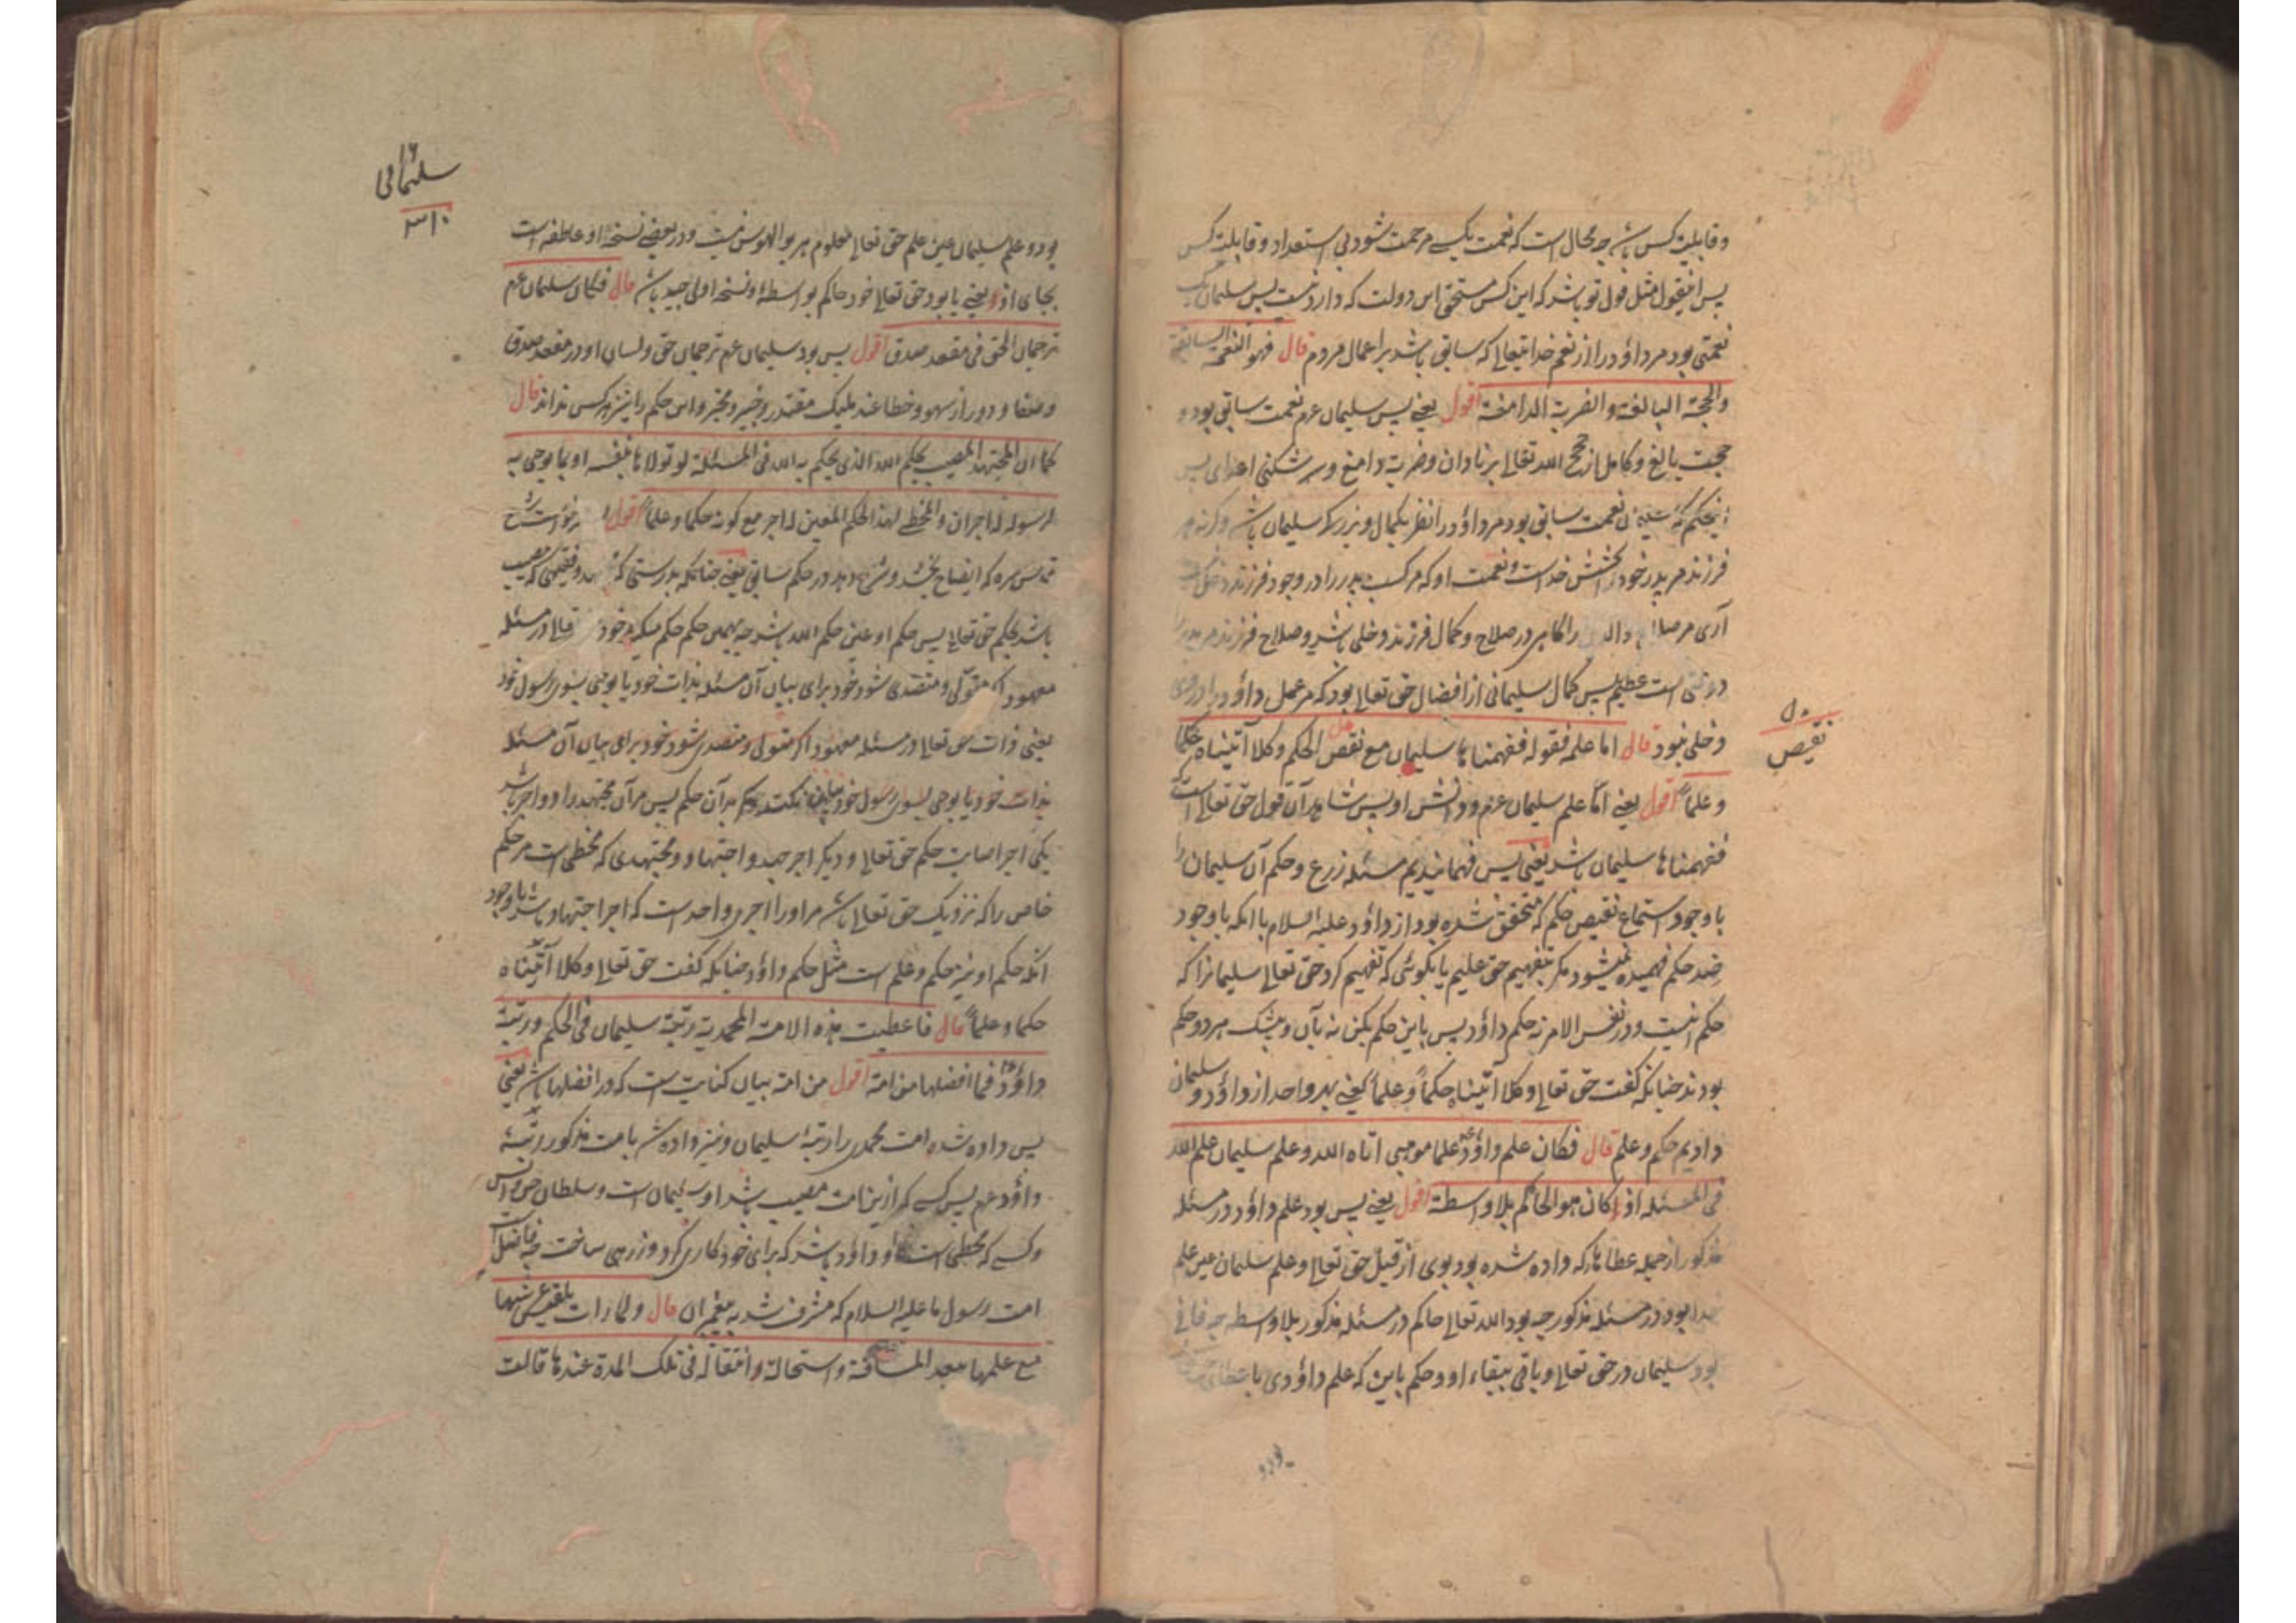 و قابلیت کس باشد چه محال است که نعمت بکسے مرحمت شود بی استعداد و قابلیت کس
پس اینقول مثل قول تو باشد که این کس مستحق این دولت که دارد نیست پس سلیمان یک
نعمتی بود مر داؤد را از نعم خدایتعالے که سابق باشد بر اعمال مردم قال فهو النعمة السابغة
والحجة البالغة والضربة الدامغة اقول یعنے پس سلیمان عم نعمت سابق بود و
حجت بالغ و کامل از حجج الله تعالے بر نادان و ضربت دامغ و سر شکنی اعدای پس
نعمت سابق بود مر داؤد را نظر بکمال و بزرگی سلیمان باشد وگرنه هر
فرزند مر پدر خود را بخشش خداست و نعمت او که مر کسب پدر را در وجود فرزند دخل نیست
آری مر صلاح والدین را گاهی در صلاح و کمال فرزند دخلی باشد و صلاح فرزند مر پدر را
است عظیم پس کمال سلیمانی از افضال حق تعالے بود که مر عمل داؤد را در وی
دخلی نبود قال اما علمه فقوله ففهمناها سلیمان مع نقض الحکم وکلا آتیناه حکما
وعلماً اقول یعنے امّا علم سلیمان عم و دانش او پس شاهد آن قول حق تعالے است که
ففهمناها سلیمان باشد یعنی پس فهمانیدیم مسئله زرع و حکم آن سلیمان را
با وجود استماع نقیض حکم که متحقق شده بود از داؤد علیه السلام با آنکه با وجود
ضد حکم فهمیده نمیشود مگر بتفهیم حق علیم یا بگوئی که تفهیم کرد حق تعالے سلیمانرا که
حکم اینست و در نفس الامر نه حکم داؤد پس باین حکم بکن نه بآن و بیشک هر دو حکم
بودند چنانکه گفت حق تعالے وکلا آتیناه حکماً وعلماً یعنے بهر واحد از داؤد و سلیمان
دادیم حکم و علم قال فکان علم داؤد عم علما موهبی اتاه الله وعلم سلیمان علم الله
فی المسئله اذ کان هو الحاکم بلا واسطة اقول یعنے پس بود علم داؤد در مسئله
مذکور از جمله عطاها که داده شده بود بوی از قبل حق تعالے و علم سلیمان عین علم
خدا بود در مسئله مذکور چه بود الله تعالے حاکم در مسئله مذکور بلا واسطه چه فانی
بود سلیمان در حق تعالے و باقی ببقاء او و حکم باین که علم داؤدی باعطای
نقیض
سلیمانی
۳۱۰
بود و علم سلیمان عین علم حق تعالے معلوم هر بوالهوس نیست و در بعضے نسخه او عاطفه است
بجای اذ یعنے یا بود حق تعالے خود حاکم بواسطهٔ و نسخه اولی جید باشد قال فکان سلیمان عم
ترجمان الحق فی مقعد صدق اقول پس بود سلیمان عم ترجمان حق و لسان او در مقعد صدق
و صفا و دور از سهو و خطا عند ملیک مقتدر و خبیر و مخبر و این حکم را نیز هر کس نداند قال
کما ان المجتهد المصیب لحکم الله الذی یحکم به الله فی المسئلة لو تولاها بنفسه او بما یوحی به
لرسوله له اجران والمخطے لهذا الحکم المعین له اجر مع کونه حکما وعلما اقول
قدس سره که ایضاح بخشد و شرح دهد در حکم سابق یعنے چنانکه بدرستی که و فقیهی که مصیب
باشد بحکم حق تعالے پس حکم او عین حکم الله باشد چه بهمان حکم حکم میکرد خود تعالے در مسئله
معهود اگر متولی و متصدی شود خود برای بیان آن مسئله بذات خود یا بوحی بسوی رسول خود
یعنی ذات حق تعالے در مسئله معهود اگر متولی و متصدی شود خود برای بیان آن مسئله
بذات خود یا بوحی بسوی رسول خود حکم بدان حکم پس مر آن مجتهد را دو اجر باشد
یکی اجر اصابت حکم حق تعالے و دیگر اجر جهد و اجتهاد و مجتهدی که مخطی است مر حکم
خاص را که نزدیک حق تعالے باشد مر او را اجری واحد است که اجر اجتهاد باشد با وجود
آنکه حکم او نیز حکم و علم است مثل حکم داؤد چنانکه گفت حق تعالے وکلا آتیناه
حکما وعلماً قال فاعطیت هذه الامة المحمدیة رتبة سلیمان فی الحکم ورتبة
داؤد عم فما افضلها من امة اقول من امة بیان کنایت است که در افضلها باشد یعنی
پس داده شده امت محمدی را رتبهٔ سلیمان و نیز داده شد بامت مذکور رتبهٔ
داؤد عم پس کسے که ازین امت مصیب باشد او سلیمان است و سلطان جن و انس
و کسے که مخطی است او داؤد باشد که برای خود کاری کرد و زرهی ساخت چه فاضل است
امت رسول ما علیه السلام که مشرف شد به پیغمبران قال ولما رات بلقیس عرشها
مع علمها ببعد المسافة واستحالة وانتقاله فی تلک المدة عندها قالت